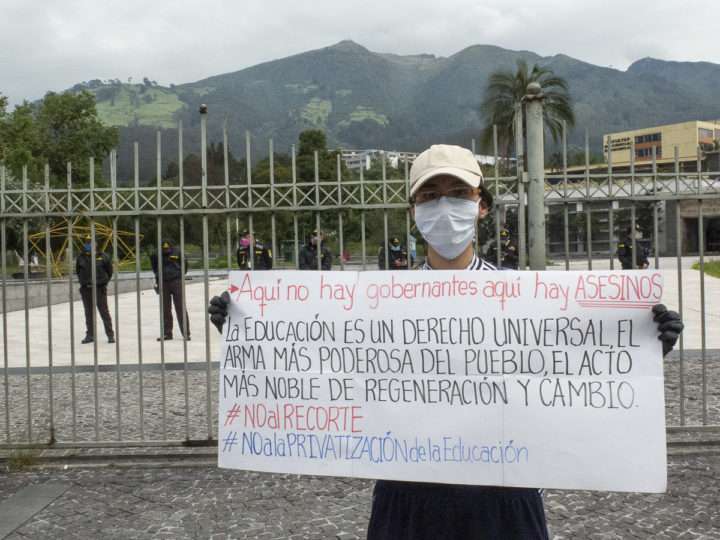 →Aquí no hay gobernantes aquí hay ASESINOS
LA EDUCACIÓN ES UN DERECHO UNIVERSAL, EL
ARMA MÁS PODEROSA DEL PUEBLO, EL ACTO
MÁS NOBLE DE REGENERACIÓN Y CAMBIO.
#NO al RECORTE
#NO a la PRIVATIZACIÓN de la Educación
FACULTAD